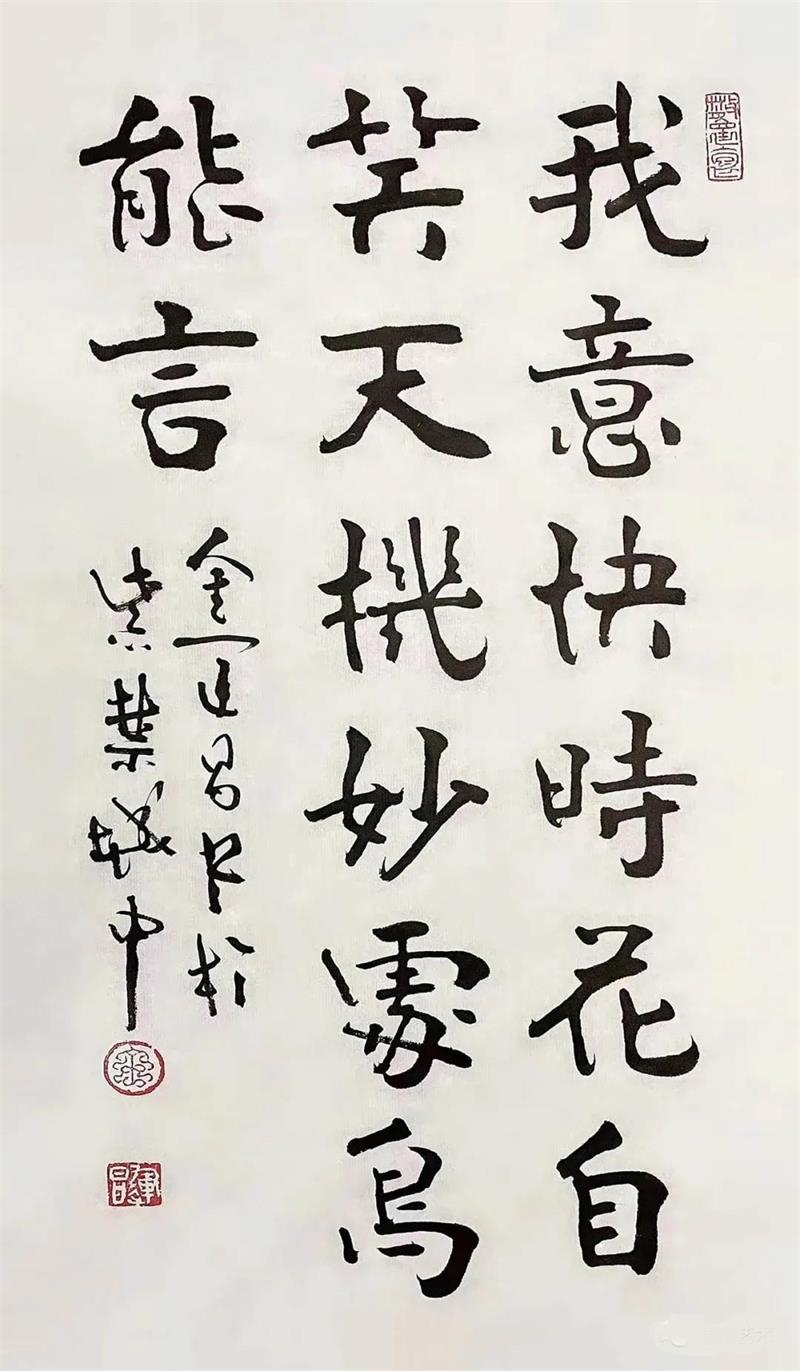 我意快時花自
笑天機妙處鳥
能言
金運昌書於
紫禁城中
金
運昌